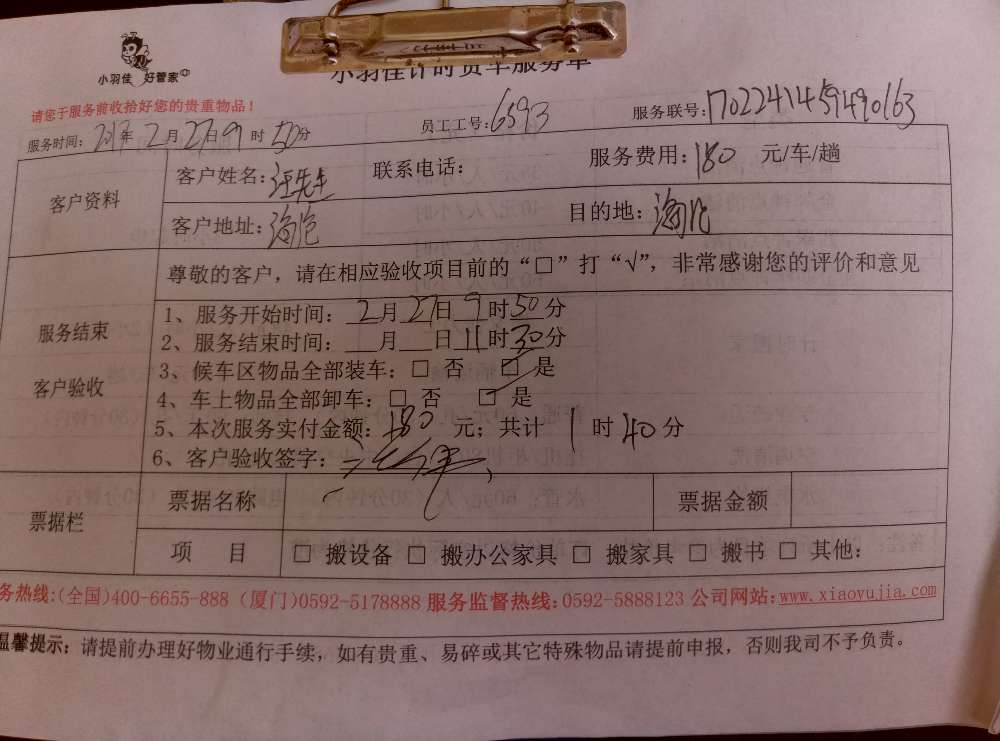 小羽佳 好管家
小羽佳计时货车服务单
请您于服务前收拾好您的贵重物品！
服务时间：2017年2月27日9时50分 员工工号：6593 服务联号：170224145949 0163
客户资料
客户姓名：汪先生 联系电话： 服务费用：180 元/车/趟
客户地址：海沧 目的地：海沧
尊敬的客户，请在相应验收项目前的“□”打“√”，非常感谢您的评价和意见
服务结束
客户验收
1、服务开始时间：2月27日9时50分
2、服务结束时间：__月__日11时30分
3、候车区物品全部装车：□ 否 □ 是
4、车上物品全部卸车：□ 否 □ 是
5、本次服务实付金额：180 元；共计 1 时40分
6、客户验收签字：
票据栏
票据名称 票据金额
项 目 □ 搬设备 □ 搬办公家具 □ 搬家具 □ 搬书 □ 其他：
务热线：(全国)400-6655-888（厦门)0592-5178888 服务监督热线：0592-5888123 公司网站：www.xiaoyujia.com
温馨提示：请提前办理好物业通行手续，如有贵重、易碎或其它特殊物品请提前申报，否则我司不予负责。